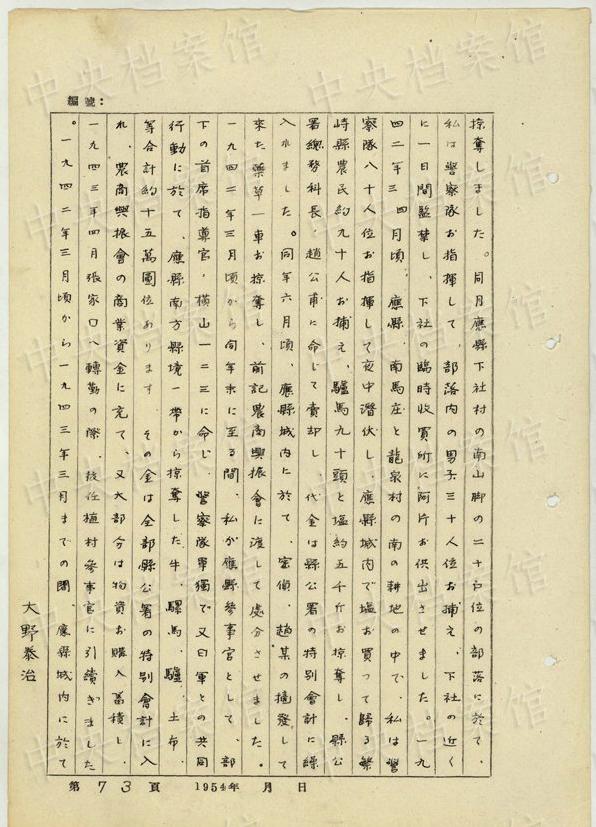 中央档案馆
編號：
掠奪しました。同月應縣下社村の南山脚の二十户位の部落に於て、
私は警察隊お指揮して、部落内の男子三十人位お捕え、下社の近く
に一日間監禁し、下社の臨時收買所に阿片お供出させました。一九
四二年三、四月頃、應縣、南馬庄と龍泉村の南の耕地の中で、私は警
察隊八十人位お指揮して夜中潜伏し、應縣城内で塩お買って歸る繁
峙縣農民約九十人お捕え、驢馬九十頭と塩約五千斤お掠奪し、縣公
署總務科長、趙公甫に命じて賣却し、代金は縣公署の特別會計に繰
入れました。同年六月頃、應縣城内に於て、密偵、趙某の摘発して
來た薬草一車お掠奪し、前記農商興振會に渡して處分させました。
一九四二年三月頃から同年末に至る間、私が應縣參事官として、部
下の首席指導官、横山一二三に命じ、警察隊單獨で又日軍との共同
行動に於て、應縣南方縣境一帶から掠奪した牛、騾馬、驢、土布、
等合計約十五萬圓位あります。その金は全部縣公署の特別會計に入
れ、農商興振會の商業資金に充て、又大部分は物資お購入蓄積し、
一九四三年四月張家口へ轉勤の際、後任植村參事官に引續ぎました
。一九四二年三月頃から一九四三年三月までの間、應縣城内に於て
大野泰治
第73頁 1954年 月 日